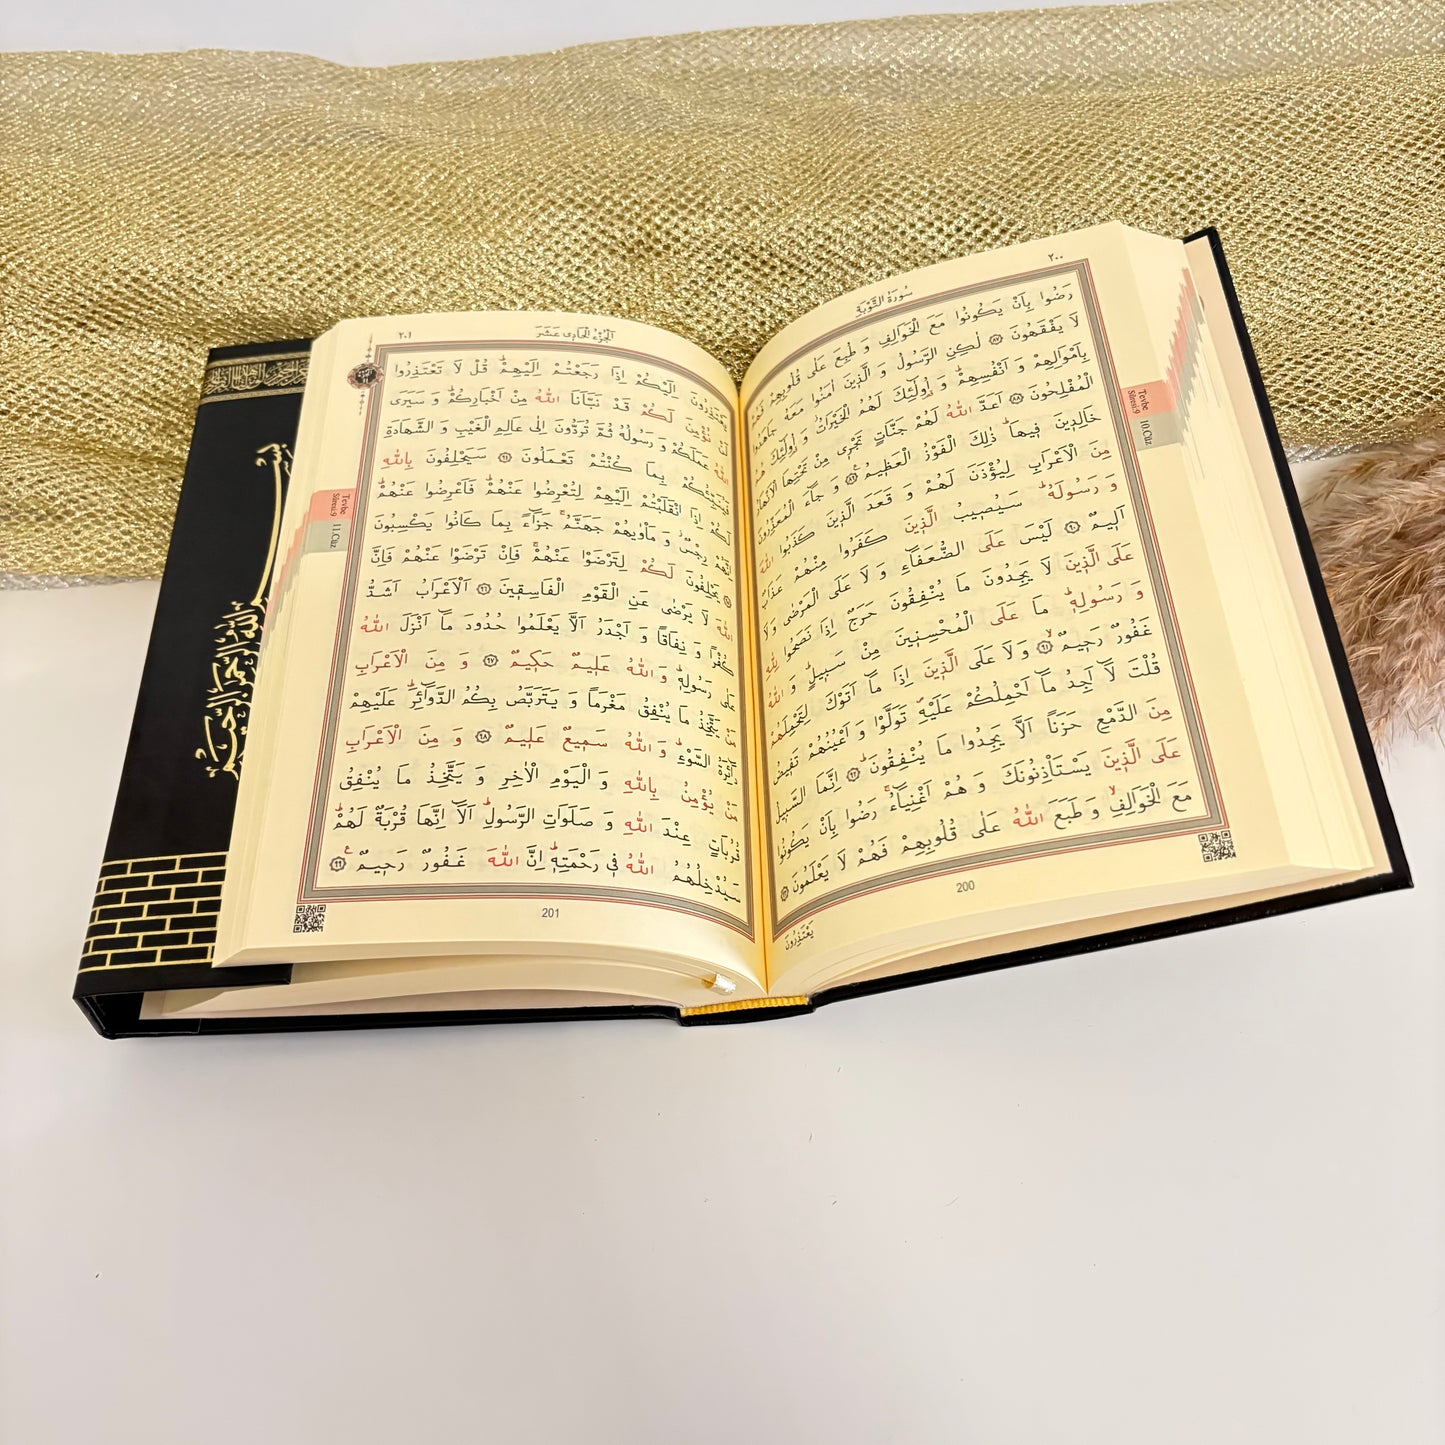 ٢٠٠
سُورَةُ التَّوْبَةِ
رَضُوا بِاَنْ يَكُونُوا مَعَ الْخَوَالِفِ وَ طُبِعَ عَلٰى قُلُوبِهِمْ فَهُمْ
لَا يَفْقَهُونَ ﴿٨٧﴾ لٰكِنِ الرَّسُولُ وَ الَّذ۪ينَ اٰمَنُوا مَعَهُ جَاهَدُوا
بِاَمْوَالِهِمْ وَ اَنْفُسِهِمْۜ وَ اُو۬لٰٓئِكَ لَهُمُ الْخَيْرَاتُۘ وَ اُو۬لٰٓئِكَ هُمُ
الْمُفْلِحُونَ ﴿٨٨﴾ اَعَدَّ اللّٰهُ لَهُمْ جَنَّاتٍ تَجْر۪ى مِنْ تَحْتِهَا الْاَنْهَارُ
خَالِد۪ينَ ف۪يهَاۜ ذٰلِكَ الْفَوْزُ الْعَظ۪يمُ۟ ﴿٨٩﴾ وَ جَٓاءَ الْمُعَذِّرُونَ
مِنَ الْاَعْرَابِ لِيُؤْذَنَ لَهُمْ وَ قَعَدَ الَّذ۪ينَ كَذَبُوا اللّٰهَ
وَ رَسُولَهُۜ سَيُص۪يبُ الَّذ۪ينَ كَفَرُوا مِنْهُمْ عَذَابٌ
اَل۪يمٌ ﴿٩٠﴾ لَيْسَ عَلَى الضُّعَفَٓاءِ وَ لَا عَلَى الْمَرْضٰى وَ لَا
عَلَى الَّذ۪ينَ لَا يَجِدُونَ مَا يُنْفِقُونَ حَرَجٌ اِذَا نَصَحُوا لِلّٰهِ
وَ رَسُولِه۪ۜ مَا عَلَى الْمُحْسِن۪ينَ مِنْ سَب۪يلٍۜ وَ اللّٰهُ
غَفُورٌ رَح۪يمٌۙ ﴿٩١﴾ وَ لَا عَلَى الَّذ۪ينَ اِذَا مَٓا اَتَوْكَ لِتَحْمِلَهُمْ
قُلْتَ لَٓا اَجِدُ مَٓا اَحْمِلُكُمْ عَلَيْهِۖ تَوَلَّوْا وَ اَعْيُنُهُمْ تَف۪يضُ
مِنَ الدَّمْعِ حَزَنًا اَلَّا يَجِدُوا مَا يُنْفِقُونَۜ ﴿٩٢﴾ اِنَّمَا السَّب۪يلُ
عَلَى الَّذ۪ينَ يَسْتَاْذِنُونَكَ وَ هُمْ اَغْنِيَٓاءُۚ رَضُوا بِاَنْ يَكُونُوا
مَعَ الْخَوَالِفِۙ وَ طَبَعَ اللّٰهُ عَلٰى قُلُوبِهِمْ فَهُمْ لَا يَعْلَمُونَ ﴿٩٣﴾
يَعْتَذِرُونَ
200
Tevbe
Sûresi:9
10.Cüz
اَلْجُزْءُ الْحَاد۪ى عَشَرَ
٢٠١
يَعْتَذِرُونَ اِلَيْكُمْ اِذَا رَجَعْتُمْ اِلَيْهِمْۜ قُلْ لَا تَعْتَذِرُوا
لَنْ نُؤْمِنَ لَكُمْ قَدْ نَبَّاَنَا اللّٰهُ مِنْ اَخْبَارِكُمْۜ وَ سَيَرَى
اللّٰهُ عَمَلَكُمْ وَ رَسُولُهُ ثُمَّ تُرَدُّونَ اِلٰى عَالِمِ الْغَيْبِ وَ الشَّهَادَةِ
فَيُنَبِّئُكُمْ بِمَا كُنْتُمْ تَعْمَلُونَ ﴿٩٤﴾ سَيَحْلِفُونَ بِاللّٰهِ
لَكُمْ اِذَا انْقَلَبْتُمْ اِلَيْهِمْ لِتُعْرِضُوا عَنْهُمْۜ فَاَعْرِضُوا عَنْهُمْۜ
اِنَّهُمْ رِجْسٌۘ وَ مَاْوٰيهُمْ جَهَنَّمُۚ جَزَٓاءً بِمَا كَانُوا يَكْسِبُونَ
﴿٩٥﴾ يَحْلِفُونَ لَكُمْ لِتَرْضَوْا عَنْهُمْۚ فَاِنْ تَرْضَوْا عَنْهُمْ فَاِنَّ
اللّٰهَ لَا يَرْضٰى عَنِ الْقَوْمِ الْفَاسِق۪ينَ ﴿٩٦﴾ اَلْاَعْرَابُ اَشَدُّ
كُفْرًا وَ نِفَاقًا وَ اَجْدَرُ اَلَّا يَعْلَمُوا حُدُودَ مَٓا اَنْزَلَ اللّٰهُ
عَلٰى رَسُولِه۪ۜ وَ اللّٰهُ عَل۪يمٌ حَك۪يمٌ ﴿٩٧﴾ وَ مِنَ الْاَعْرَابِ
مَنْ يَتَّخِذُ مَا يُنْفِقُ مَغْرَمًا وَ يَتَرَبَّصُ بِكُمُ الدَّوَٓائِرَۜ عَلَيْهِمْ
دَٓائِرَةُ السَّوْءِۜ وَ اللّٰهُ سَم۪يعٌ عَل۪يمٌ ﴿٩٨﴾ وَ مِنَ الْاَعْرَابِ
مَنْ يُؤْمِنُ بِاللّٰهِ وَ الْيَوْمِ الْاٰخِرِ وَ يَتَّخِذُ مَا يُنْفِقُ
قُرُبَاتٍ عِنْدَ اللّٰهِ وَ صَلَوَاتِ الرَّسُولِۜ اَلَٓا اِنَّهَا قُرْبَةٌ لَهُمْۜ
سَيُدْخِلُهُمُ اللّٰهُ ف۪ى رَحْمَتِه۪ۜ اِنَّ اللّٰهَ غَفُورٌ رَح۪يمٌ۟ ﴿٩٩﴾
201
Tevbe
Sûresi:9
11.Cüz
بِسْمِ اللّٰهِ الرَّحْمٰنِ الرَّح۪يمِ